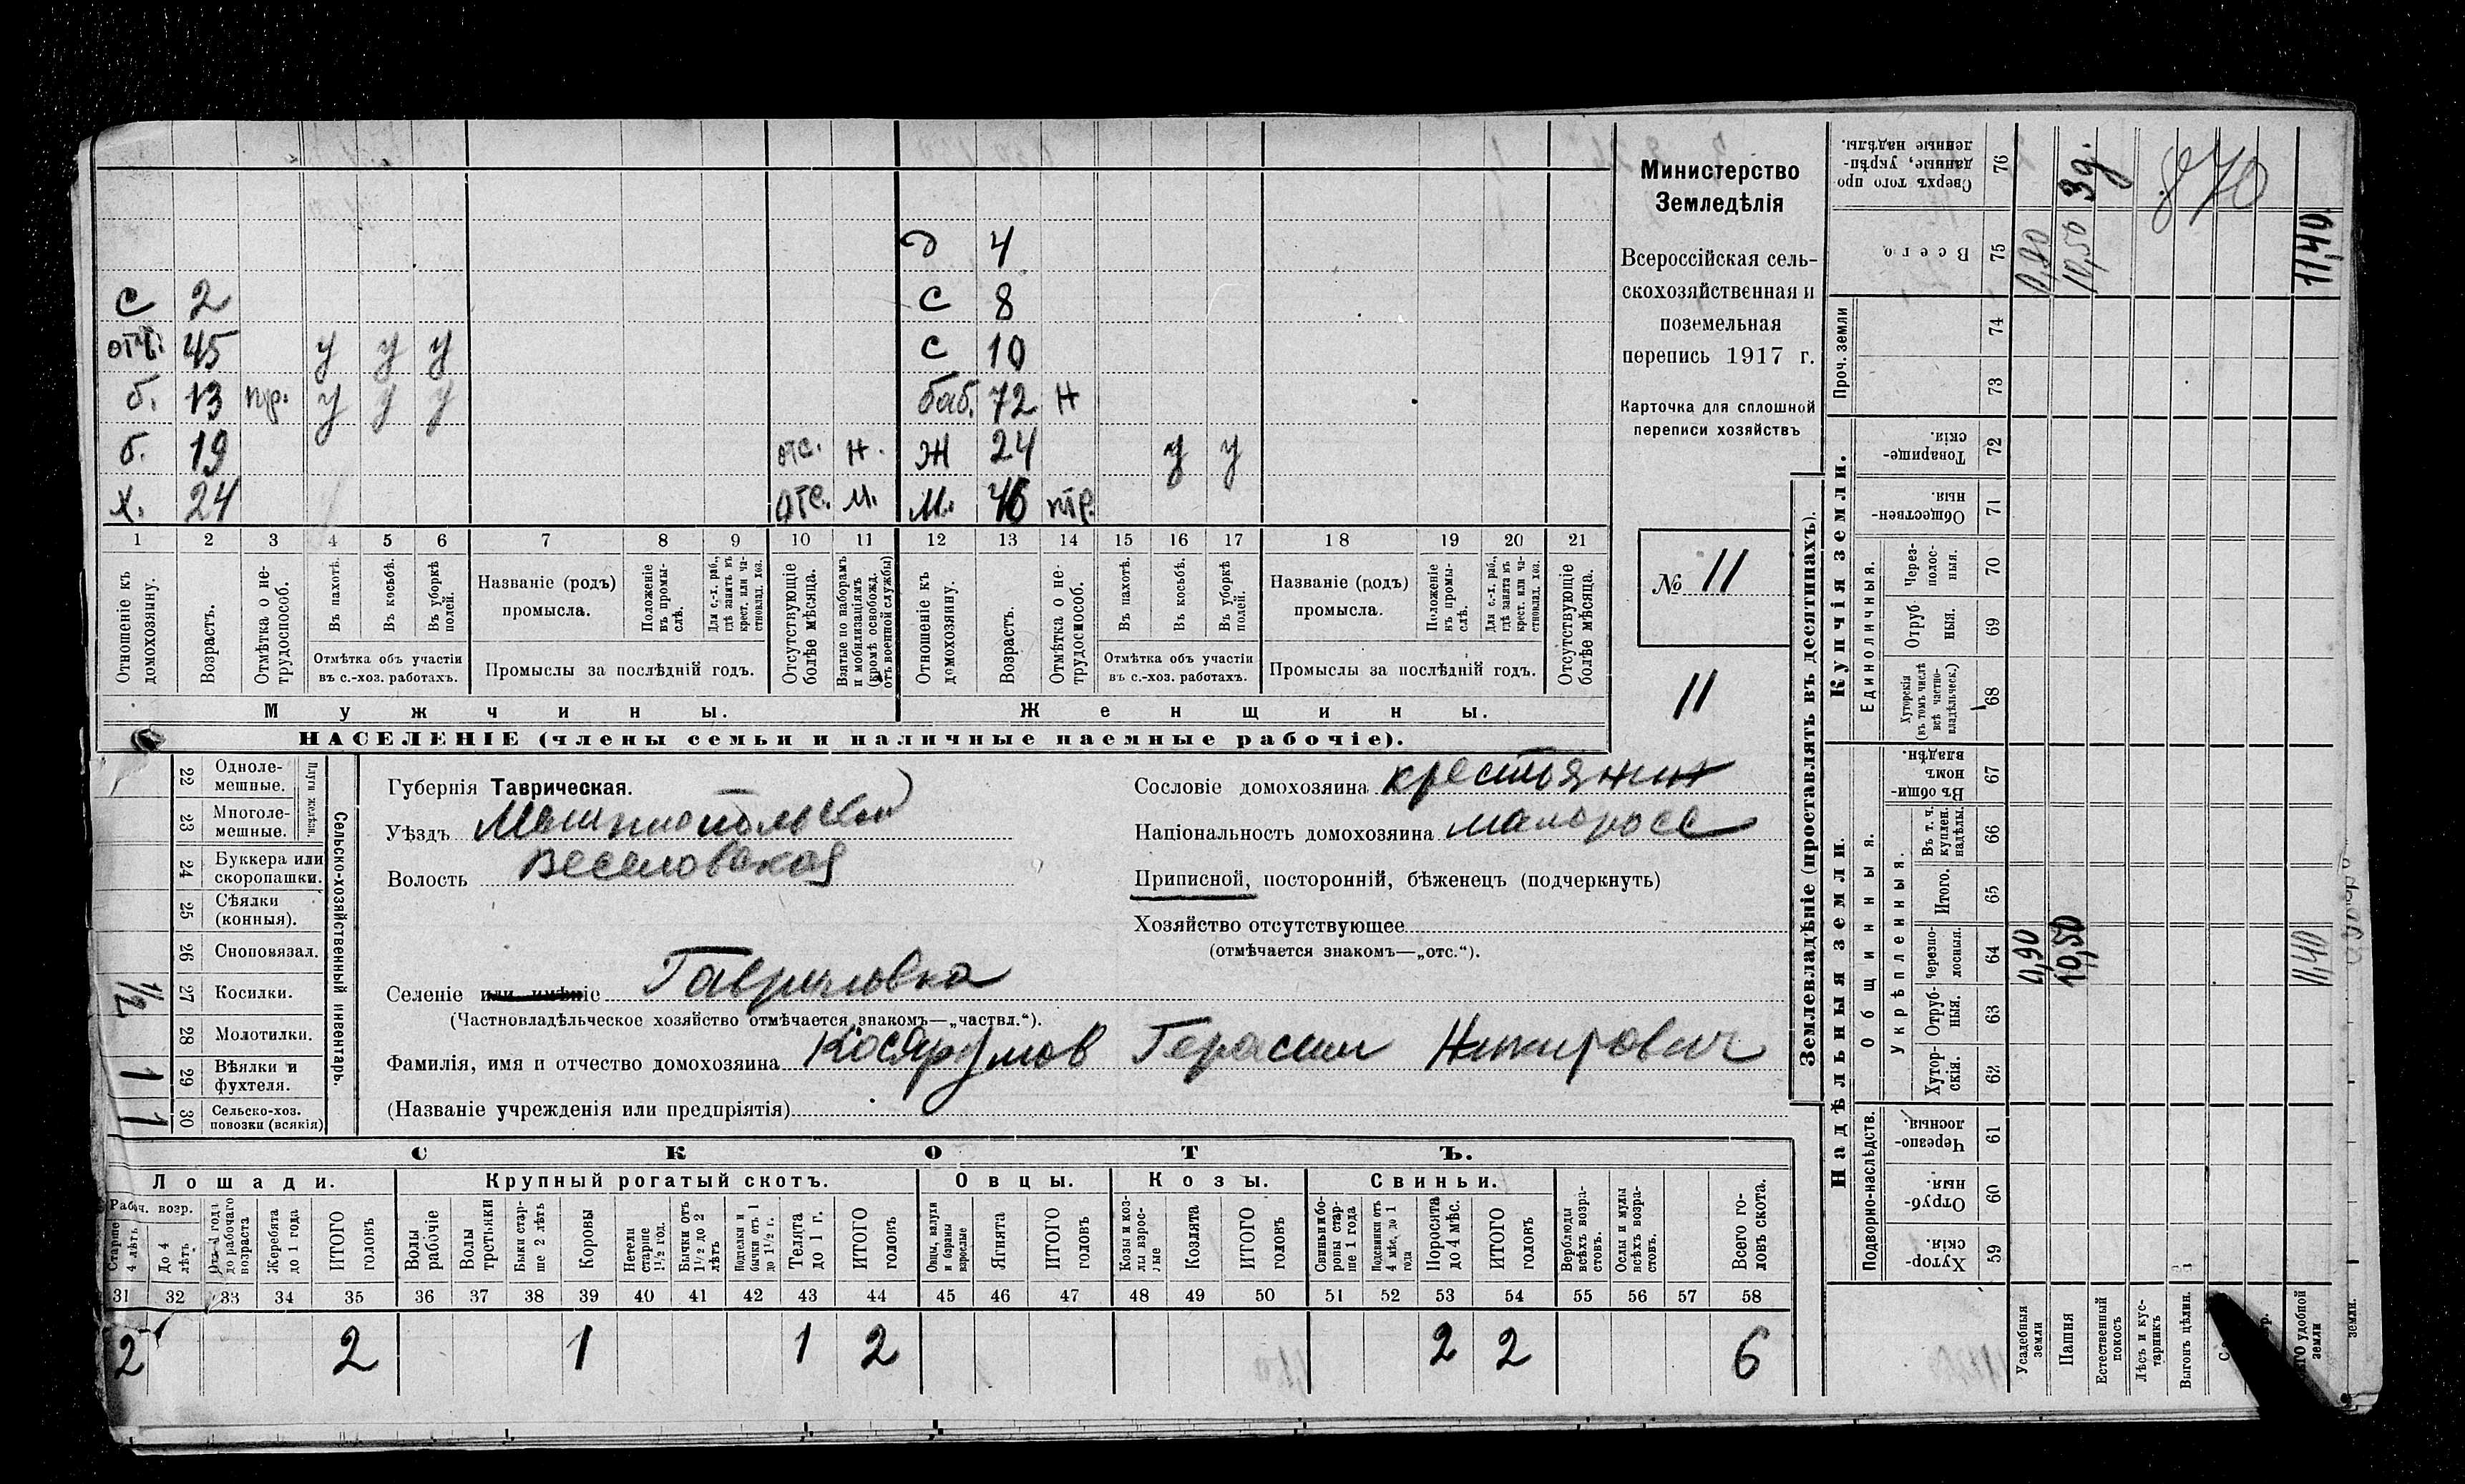 д 4
с 2 с 8
отч. 45 у у у с 10
б. 13 пр. у у у баб. 72 н
б. 19 отс. н. ж 24 у у
х. 24 отс. м. м. 46 пр.
1 2 3 4 5 6 7 8 9 10 11 12 13 14 15 16 17 18 19 20 21
Отношеніе къ домохозяину.
Возрастъ.
Отмѣтка о не-трудоспособ.
Въ пахотѣ.
Въ косьбѣ.
Въ уборкѣ полей.
Отмѣтка объ участіи
въ с.-хоз. работахъ.
Названіе (родъ)
промысла.
Положеніе въ промы-слѣ.
Для с.-х. раб., гдѣ занятъ въ крест. или ча-стновлад. хоз.
Промыслы за послѣдній годъ.
Отсутствующіе болѣе мѣсяца.
Взятые по наборамъ и мобилизаціямъ (кромѣ освобожд. отъ военной службы)
Отношеніе къ домохозяину.
Возрастъ.
Отмѣтка о не-трудоспособ.
Въ пахотѣ.
Въ косьбѣ.
Въ уборкѣ полей.
Отмѣтка объ участіи
въ с.-хоз. работахъ.
Названіе (родъ)
промысла.
Положеніе въ промы-слѣ.
Для с.-х. раб., гдѣ занятъ въ крест. или ча-стновлад. хоз.
Промыслы за послѣдній годъ.
Отсутствующіе болѣе мѣсяца.
Мужчины. Женщины.
НАСЕЛЕНІЕ (члены семьи и наличные наемные рабочіе).
Министерство
Земледѣлія
Всероссійская сель-
скохозяйственная и
поземельная
перепись 1917 г.
Карточка для сплошной
переписи хозяйствъ
№ 11
11
Сельско-хозяйственный инвентарь.
Плуги желѣзн.
22 Одноле-мешные.
23 Многоле-мешные.
24 Буккера или скоропашки.
25 Сѣялки (конныя).
26 Сноповязал.
1/2 27 Косилки.
28 Молотилки.
1 29 Вѣялки и фухтеля.
1 30 Сельско-хоз. повозки (всякія)
Губернія Таврическая.
Уѣздъ Мелитопольский
Волость Веселовская
Сословіе домохозяина крестьянин
Національность домохозяина малоросс
Приписной, посторонній, бѣженецъ (подчеркнуть)
Хозяйство отсутствующее
(отмѣчается знакомъ—„отс.“).
Селеніе или имѣніе Гавриловка
(Частновладѣльческое хозяйство отмѣчается знакомъ—„частвл.“).
Фамилія, имя и отчество домохозяина Герасим
(Названіе учрежденія или предпріятія)
СКОТЪ.
Лошади. Крупный рогатый скотъ. Овцы. Козы. Свиньи.
Рабоч. возр.
Старше 4 лѣтъ
До 4 лѣтъ
Отъ 1 года до рабочаго возраста
Жеребята до 1 года
ИТОГО головъ
Волы рабочіе
Волы третьяки
Быки стар-ше 2 лѣтъ
Коровы
Нетели старше 1½ год.
Бычки отъ 1½ до 2 лѣтъ
Подтелки и бычки отъ 1 до 1½ г.
Телята до 1 г.
ИТОГО головъ
Овцы, валухи и бараны взрослые
Ягнята
ИТОГО головъ
Козы и коз-лы взрос-лые
Козлята
ИТОГО головъ
Свиньи и бо-ровы стар-ше 1 года
Подсвинки отъ 4 мѣс. до 1 года
Поросята до 4 мѣс.
ИТОГО головъ
Верблюды всѣхъ возра-стовъ.
Ослы и мулы всѣхъ возра-стовъ.
Всего го-ловъ скота.
31 32 33 34 35 36 37 38 39 40 41 42 43 44 45 46 47 48 49 50 51 52 53 54 55 56 57 58
2 2 1 1 2 2 2 6
Землевладѣніе (проставлять въ десятинахъ).
Купчія земли.
Надѣльныя земли.
Сверхъ того про-даные, укрѣп-ленные надѣлы. 76 3д. 870
Всего 75 0,90 10,50 11,40
Проч. земли 74
73
Товарище-скія. 72
Обществен-ныя. 71
Единоличныя.
Через-полос-ныя. 70
Отруб-ныя. 69
Хуторскія (въ томъ числѣ всѣ частно-владѣльческ.) 68
Общинныя.
Въ общин-номъ владѣн. 67
Укрѣпленныя.
Въ т. ч. куплен. надѣлы. 66
Итого. 65
Черезпо-лосныя. 64 0,90 10,50 11,40
Отруб-ныя. 63
Хутор-скія. 62
Подворно-наслѣдств.
Черезпо-лосныя. 61
Отруб-ныя. 60
Хутор-скія. 59
Усадебныя земли
Пашня
Естественный покосъ
Лѣсъ и кус-тарникъ
Выгонъ цѣлин.
удобной земли
земли.